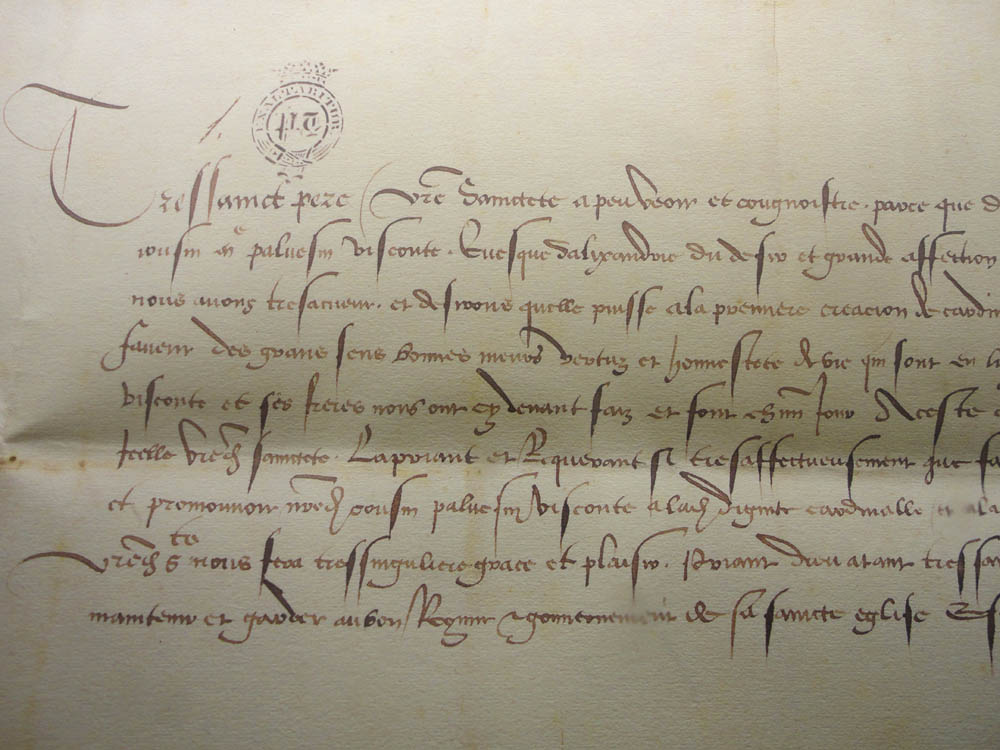 EXALTABITUR
Tressainct pere / Vre Sainctete a peu veoir et congnoistre . parce que d
cousin me palvesin Visconte . Evesque dalixandrie du desir et grande affection
nous avons tresacueur . et desirons quelle puisse a la premiere creacion de cardin
faveur des grans sens bonnes meurs vertuz et honnestete de vie qui sont en l
Visconte et ses freres nous ont cy devant faiz et font chun Jour Aceste
Icelle Vred sainctete . La priant et Requerant si tresaffectueusement que fa
et promouvoir nred cousin palvesin Visconte a lad dignite cardinalle et ala
Vred Ste nous fera tressinguliere grace et plaisir . Priant dieu atant tressa
maintenir et garder au bon Regime & gouvernement de sa saincte eglise Es